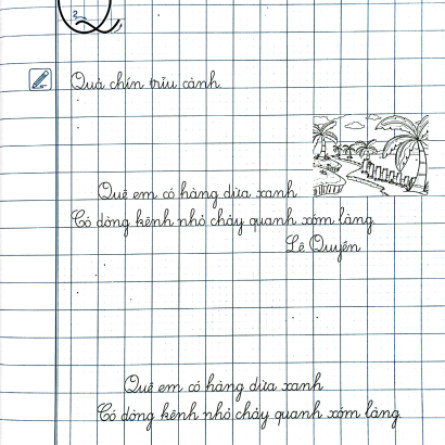 Quả chín trĩu cành.
Quê em có hàng dừa xanh
Có dòng kênh nhỏ chảy quanh xóm làng
Lê Quyên
Quê em có hàng dừa xanh
Có dòng kênh nhỏ chảy quanh xóm làng